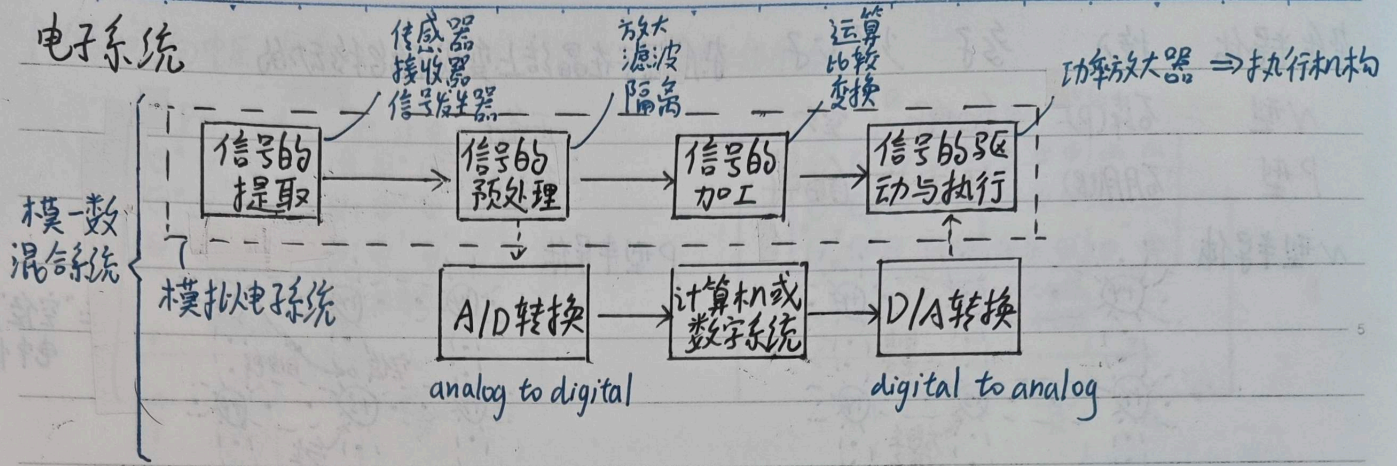 电子系统
传感器
接收器
信号发生器
放大
滤波
隔离
运算
比较
变换
功率放大器 ⇒ 执行机构
信号的
提取
信号的
预处理
信号的
加工
信号的驱
动与执行
模一数
混合系统
模拟电子系统
A/D转换
计算机或
数字系统
D/A转换
analog to digital
digital to analog
5